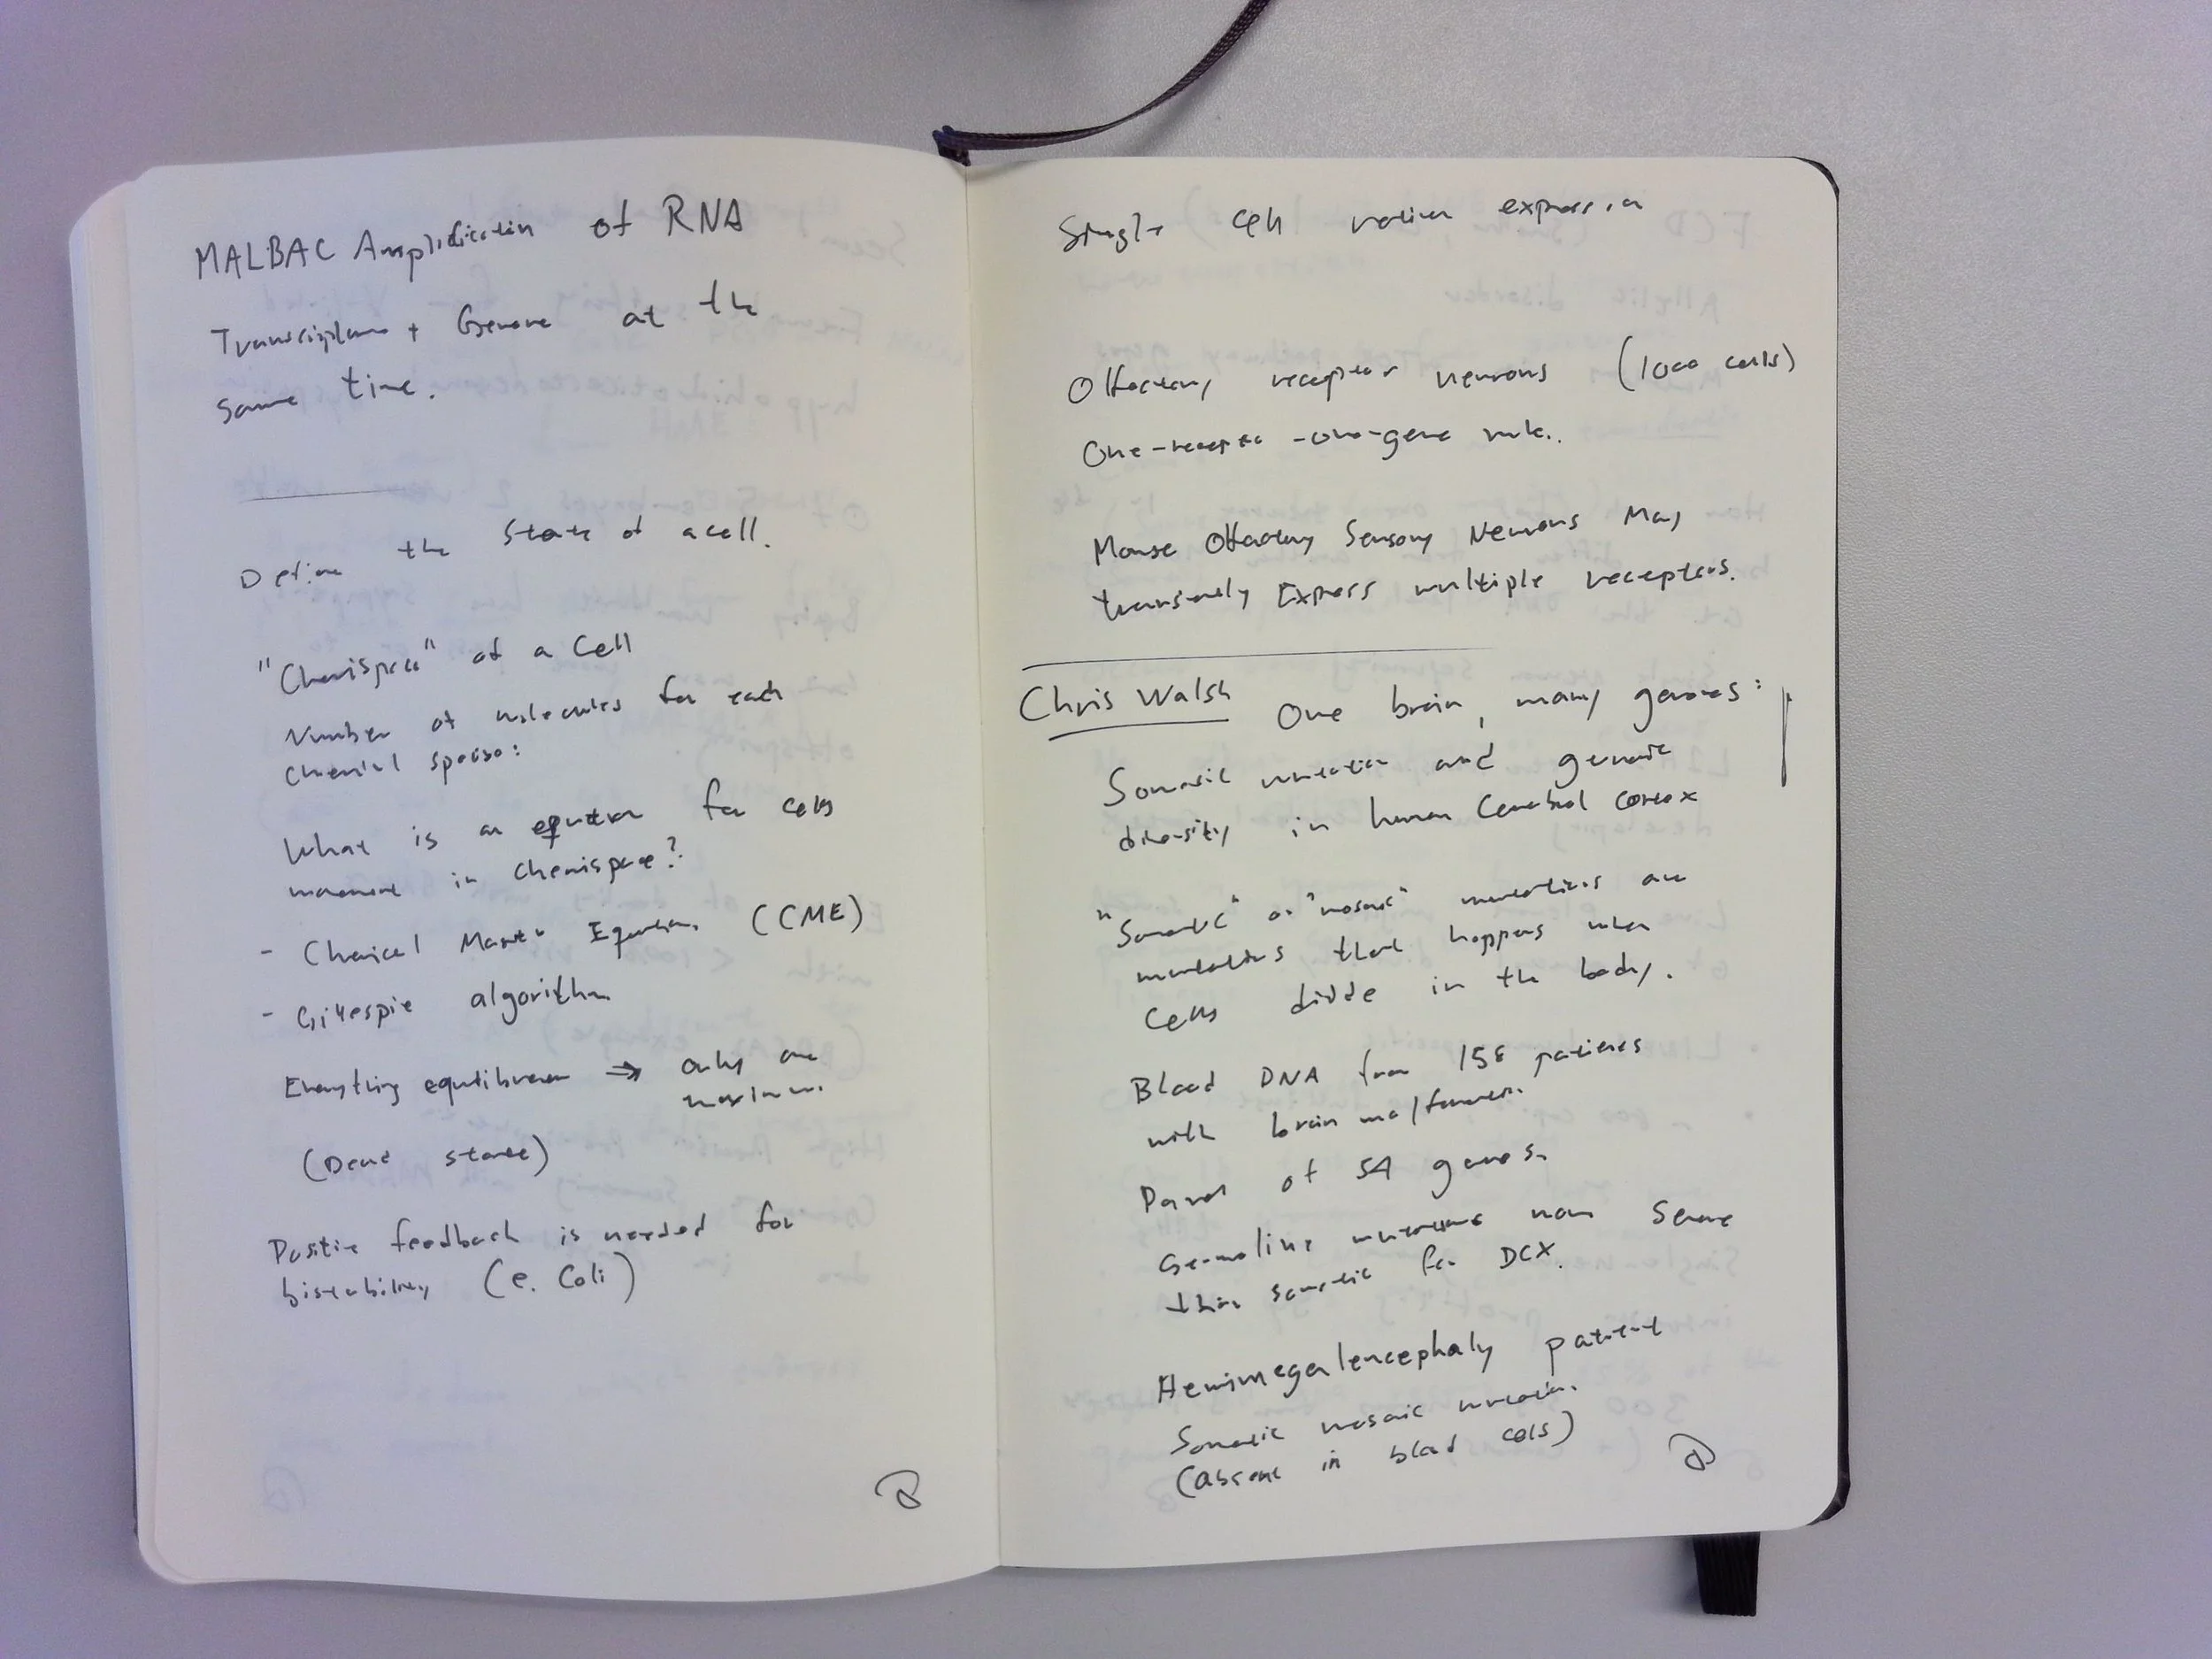 MALBAC Amplification of RNA
Transcriptome + Genome at the
same time.
Define the state of a cell.
"Chemispace" of a cell
Number of molecules for each
chemical species:
What is an equation for cells
movement in chemispace?
- Chemical Master Equation (CME)
- Gillespie algorithm
Everything equilibrium ⇒ only one
maximum.
(Dead state)
Positive feedback is needed for
bistability (e. Coli)
Single cell expression
Olfactory receptor neurons (1000 cells)
One-receptor-one-gene rule.
Mouse Olfactory Sensory Neurons May
transiently Express multiple receptors.
Chris Walsh One brain, many genomes:
Somatic mutation and genomic
diversity in human Cerebral cortex
"Somatic" or "mosaic" mutations are
mutations that happens when
cells divide in the body.
Blood DNA from 158 patients
with brain malformation.
Panel of 54 genes.
Germline mutations more severe
than somatic for DCX.
Hemimegalencephaly patient
Somatic mosaic mutation.
(absent in blood cells)